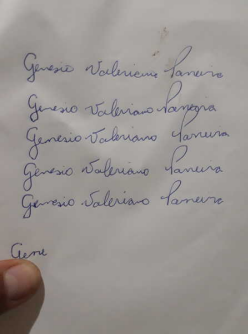 Genesio Valeriano Pareira
Genesio Valeriano Pareira
Genesio Valeriano Pareira
Genesio Valeriano Pareira
Genesio Valeriano Pareira
Gene